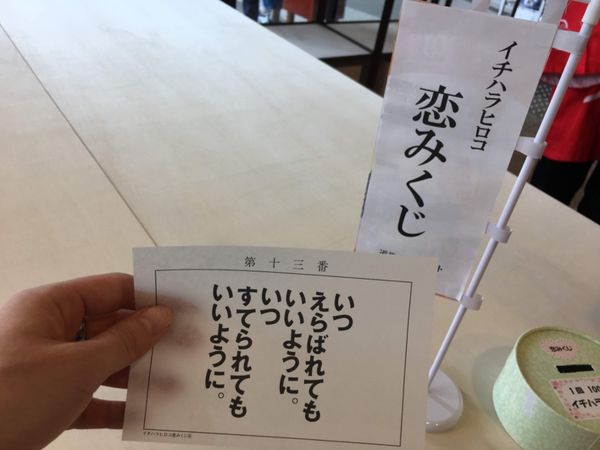 イチハラヒロコ
恋みくじ
第十三番
いつ
えらばれても
いいように。
いつ
すてられても
いいように。
イチハラヒロコ恋みくじⓒ
恋みくじ
1回 100
イチハラ